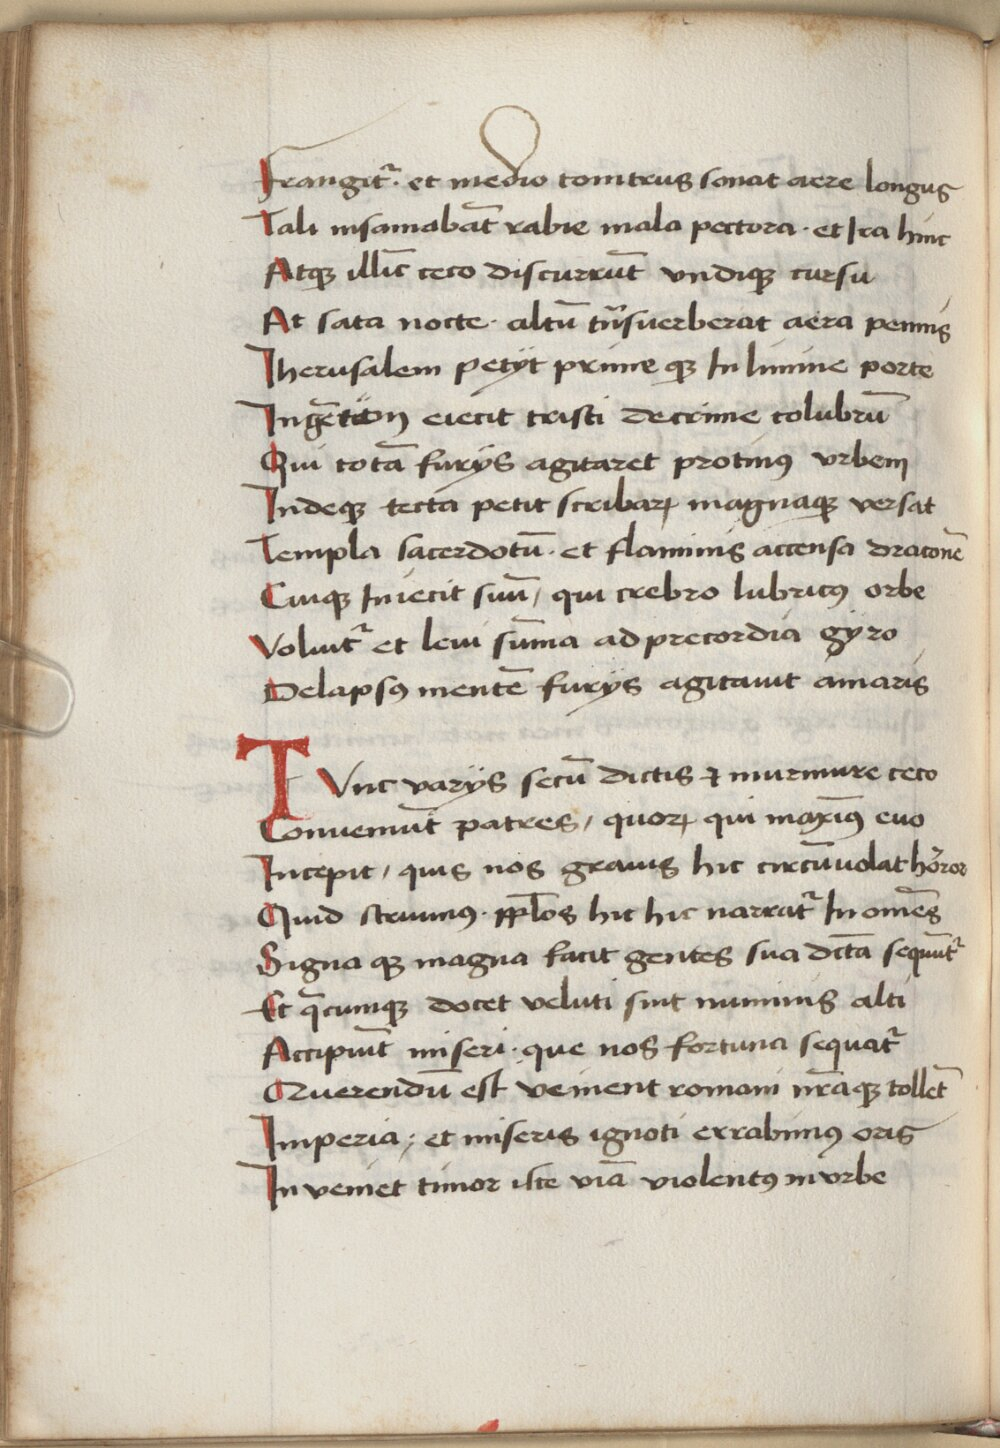 Frangit᷑· et medio tonitrus sonat aere longus
Tali insanabāt rabie mala pectora· et Ira hinc
Atqꝫ illīc ceco discurrūt vndiqꝫ cursu
At sata nocte· altū trāsuerberat aera pennis
Jherusalem petijt prime qꝫ In limine porte
eiecit tristi decrime colubrū
Qui totā furijs agitaret protinꝰ vrbem
Indeqꝫ tecta petit scribaꝝ magnaqꝫ versat
Templa sacerdotū· et flaminis accensa draconē
Cuiqꝫ Iniecit suū / qui crebro lubricꝰ orbe
Voluit᷑ et leui sūma ad precordia gyro
Delapsꝰ mentē furijs agitauit amaris
Tvnc varijs secū dictis ⁊ murmure ceco
Conueniūt patres / quoꝝ qui maximꝰ euo
Incepit / quis nos grauis hic circūuolat horror
Quid struimꝰ· hic hic narrat᷑ In omēs
Signa qꝫ magna facit gentes sua dc̄ta sequūt᷑
Et qcumqꝫ docet veluti sint numinis alti
Accipiūt miseri· que nos fortuna sequat᷑
Querendū est venient romani nr̄aqꝫ tollēt
Imperia ; et miseris ignoti errabimꝰ oris
Inveniet timor iste viā violentꝰ in vrbe